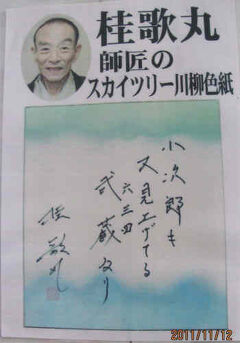 桂歌丸
師匠の
スカイツリー川柳色紙
小次郎も
又見上げてる
六三四
武蔵なり
桂歌丸
2011/11/12